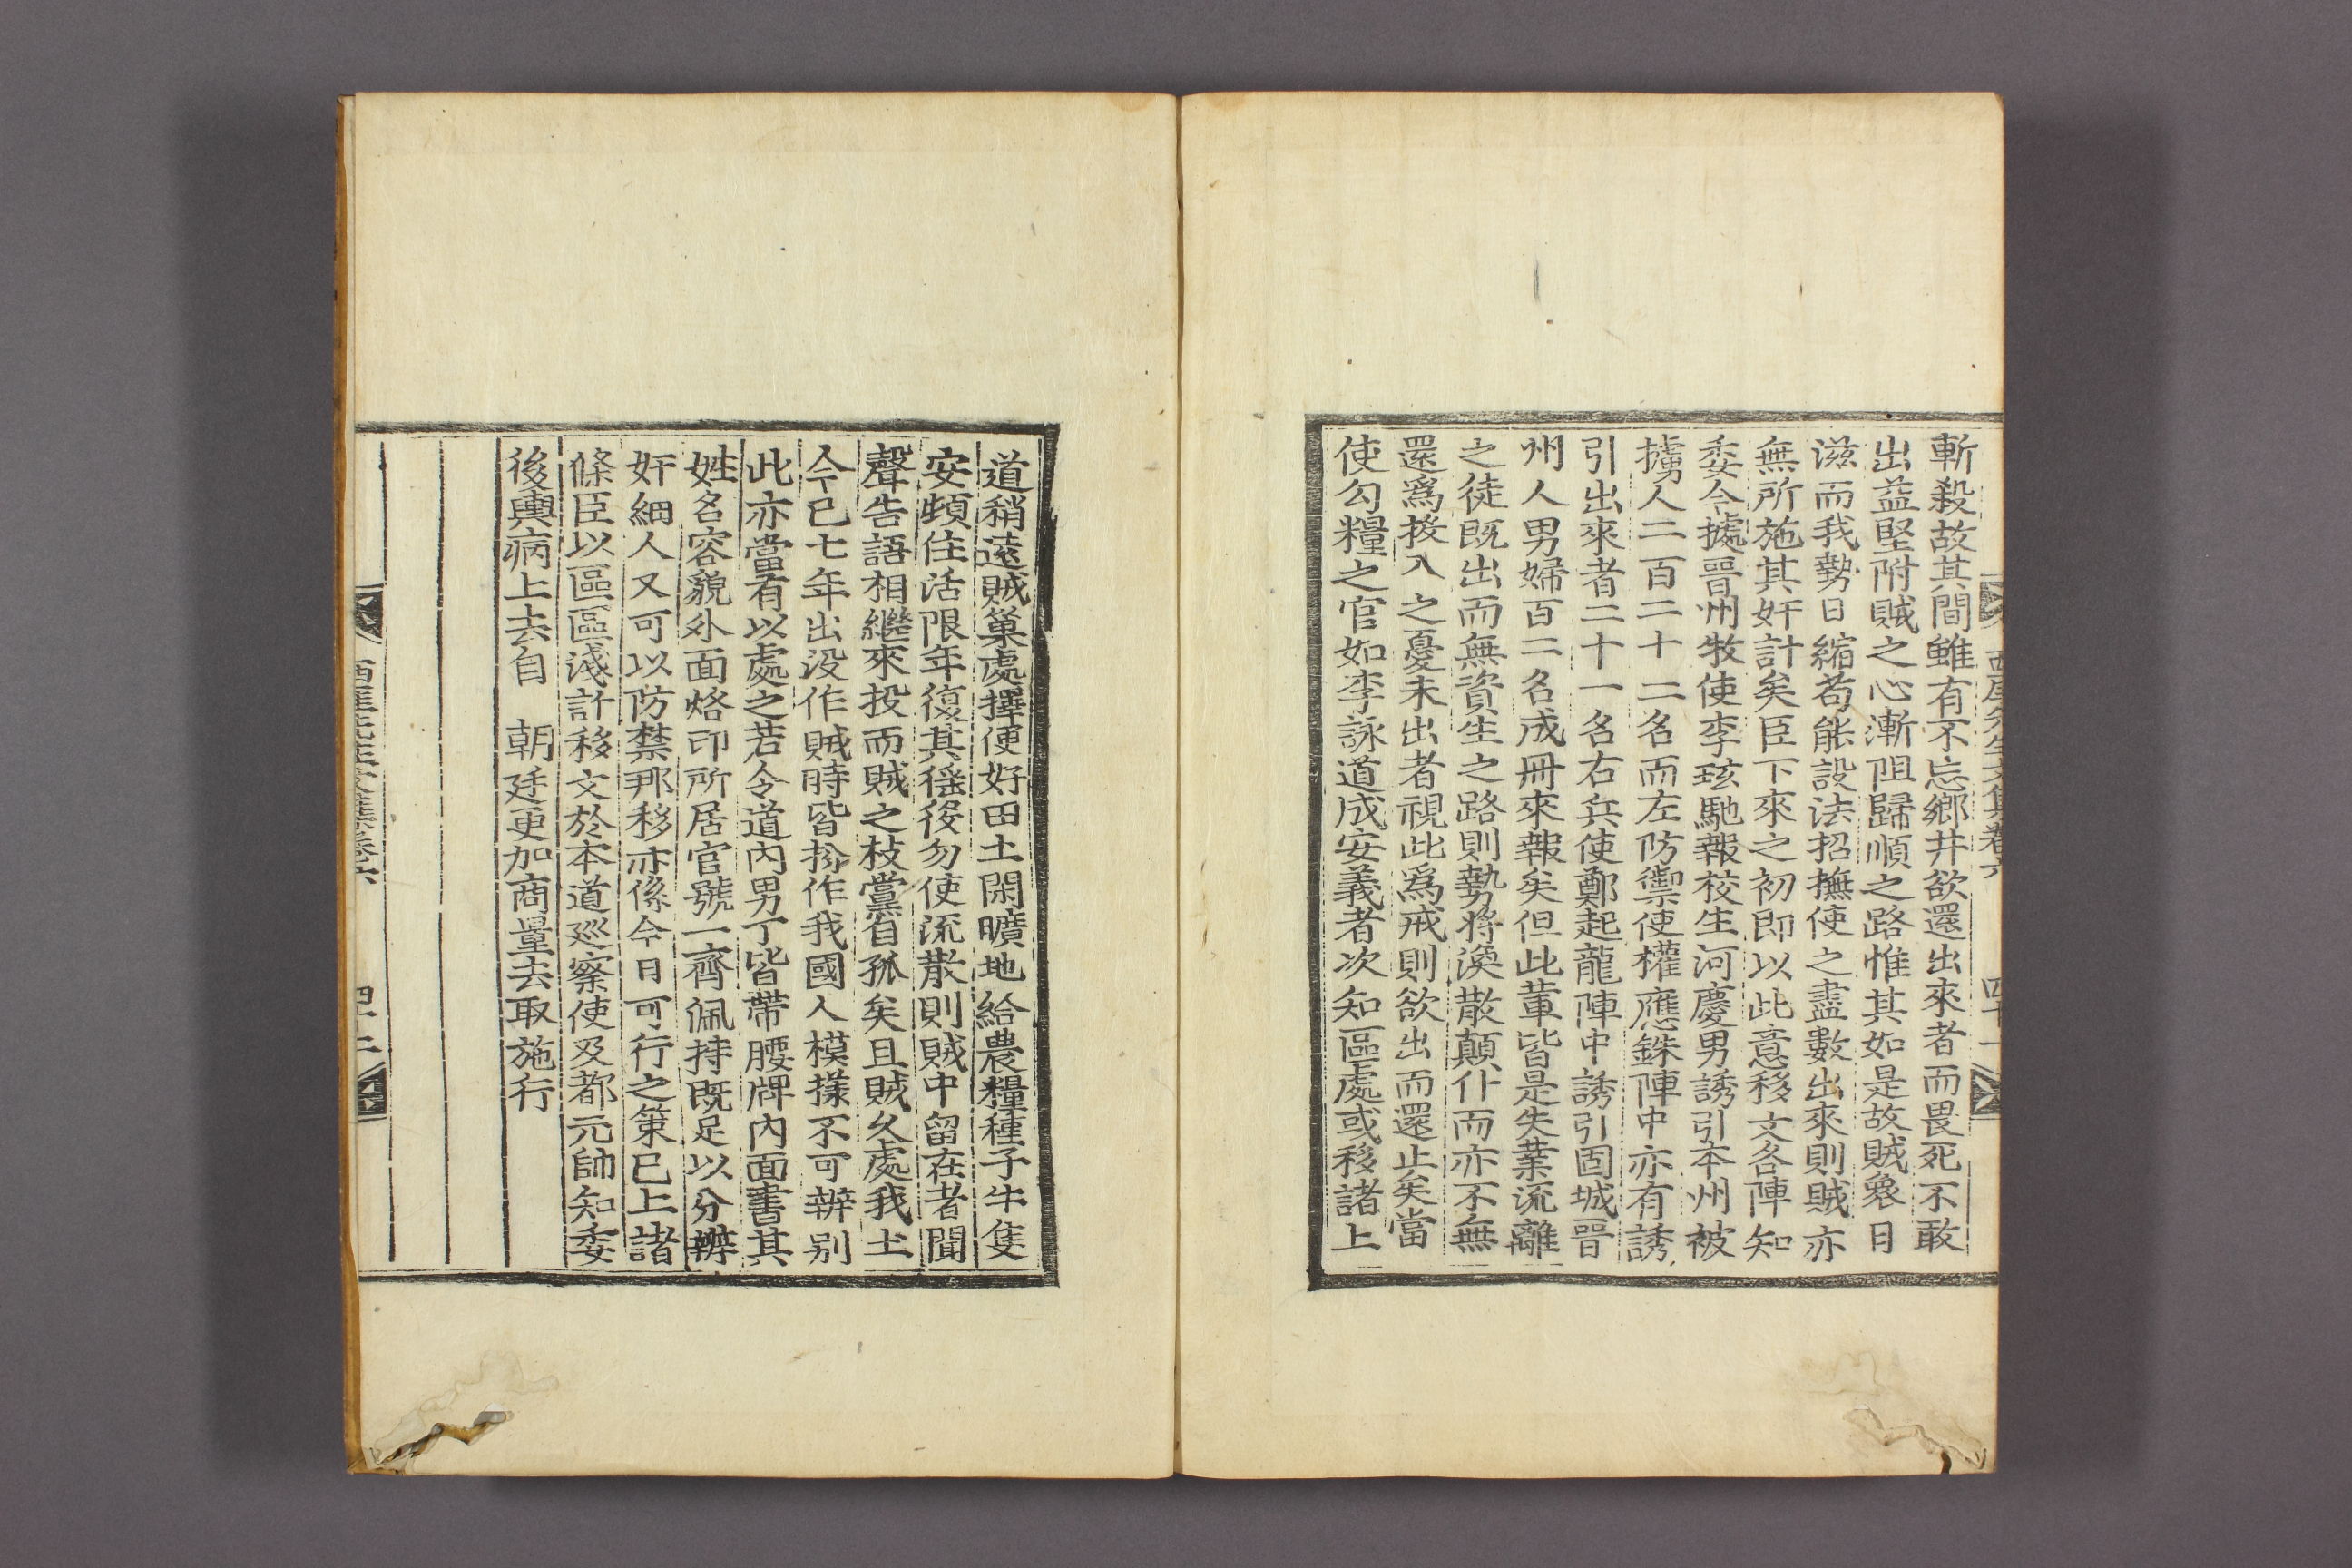 西厓先生文集卷六 四十一
斬殺故其間雖有不忘鄉井欲還出來者而畏死不敢
出益堅附賊之心漸阻歸順之路惟其如是故賊衆日
滋而我勢日縮苟能設法招撫使之盡數出來則賊亦
無所施其奸計矣臣下來之初即以此意移文各陣知
委今據晉州牧使李玹馳報校生河慶男誘引本州被
擄人二百二十二名而左防禦使權應銖陣中亦有誘
引出來者二十一名右兵使鄭起龍陣中誘引固城晉
州人男婦百二名成冊來報矣但此輩皆是失業流離
之徒既出而無資生之路則勢將渙散顛仆而亦不無
還爲投入之憂未出者視此爲戒則欲出而還止矣當
使勾糧之官如李詠道成安義者次知區處或移諸上
道稍遠賊巢處擇便好田土閑曠地給農糧種子牛隻
安頓住活限年復其徭役勿使流散則賊中留在者聞
聲告語相繼來投而賊之枝黨自孤矣且賊久處我土
今已七年出没作賊時皆扮作我國人模㨾不可辨别
此亦當有以處之若令道內男丁皆帶腰牌內面書其
姓名容貌外面烙印所居官號一齊佩持既足以分辨
奸細人又可以防禁那移亦係今日可行之策已上諸
條臣以區區淺計移文於本道廵察使及都元帥知委
後輿病上去自　朝廷更加商量去取施行
西厓先生文集卷六 四十二